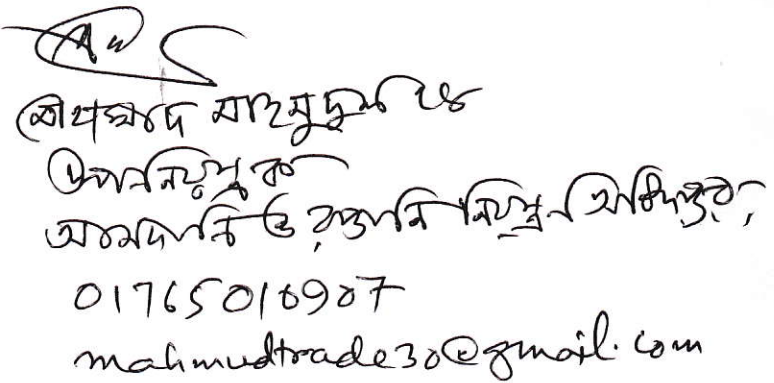 মোহাম্মদ মাহমুদুল হক
উপনিয়ন্ত্রক
আমদানি ও রপ্তানি নিয়ন্ত্রণ অধিদপ্তর,
01765016907
mahmudtrade30@gmail.com